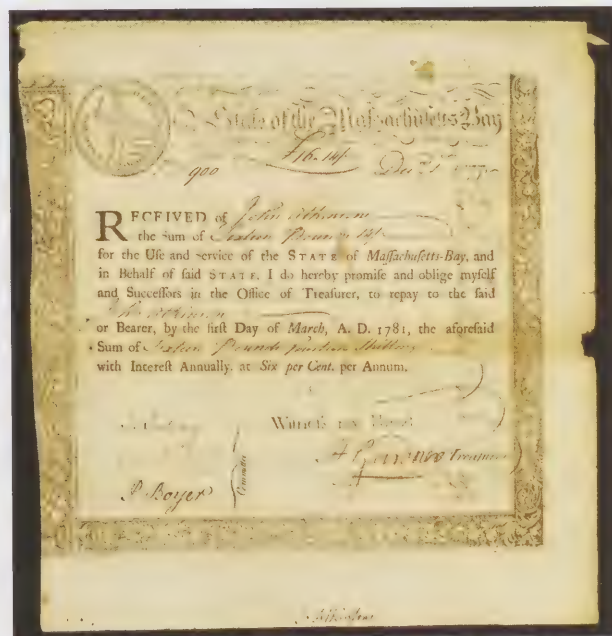 State of the Maſſachuſetts Bay
£16.14/
900 Decr. 1
RECEIVED of John Atkinson
the Sum of Sixteen Pounds 14/
for the Uſe and Service of the STATE of Maſſachuſetts-Bay, and
in Behalf of ſaid STATE, I do hereby promiſe and oblige myſelf
and Succeſſors in the Office of Treaſurer, to repay to the ſaid
Jno. Atkinson
or Bearer, by the firſt Day of March, A. D. 1781, the aforeſaid
Sum of Sixteen Pounds fourteen Shillings
with Intereſt Annually, at Six per Cent. per Annum.
Witneſs my Hand
Treaſurer
P Boyer
Committee
Atkinson